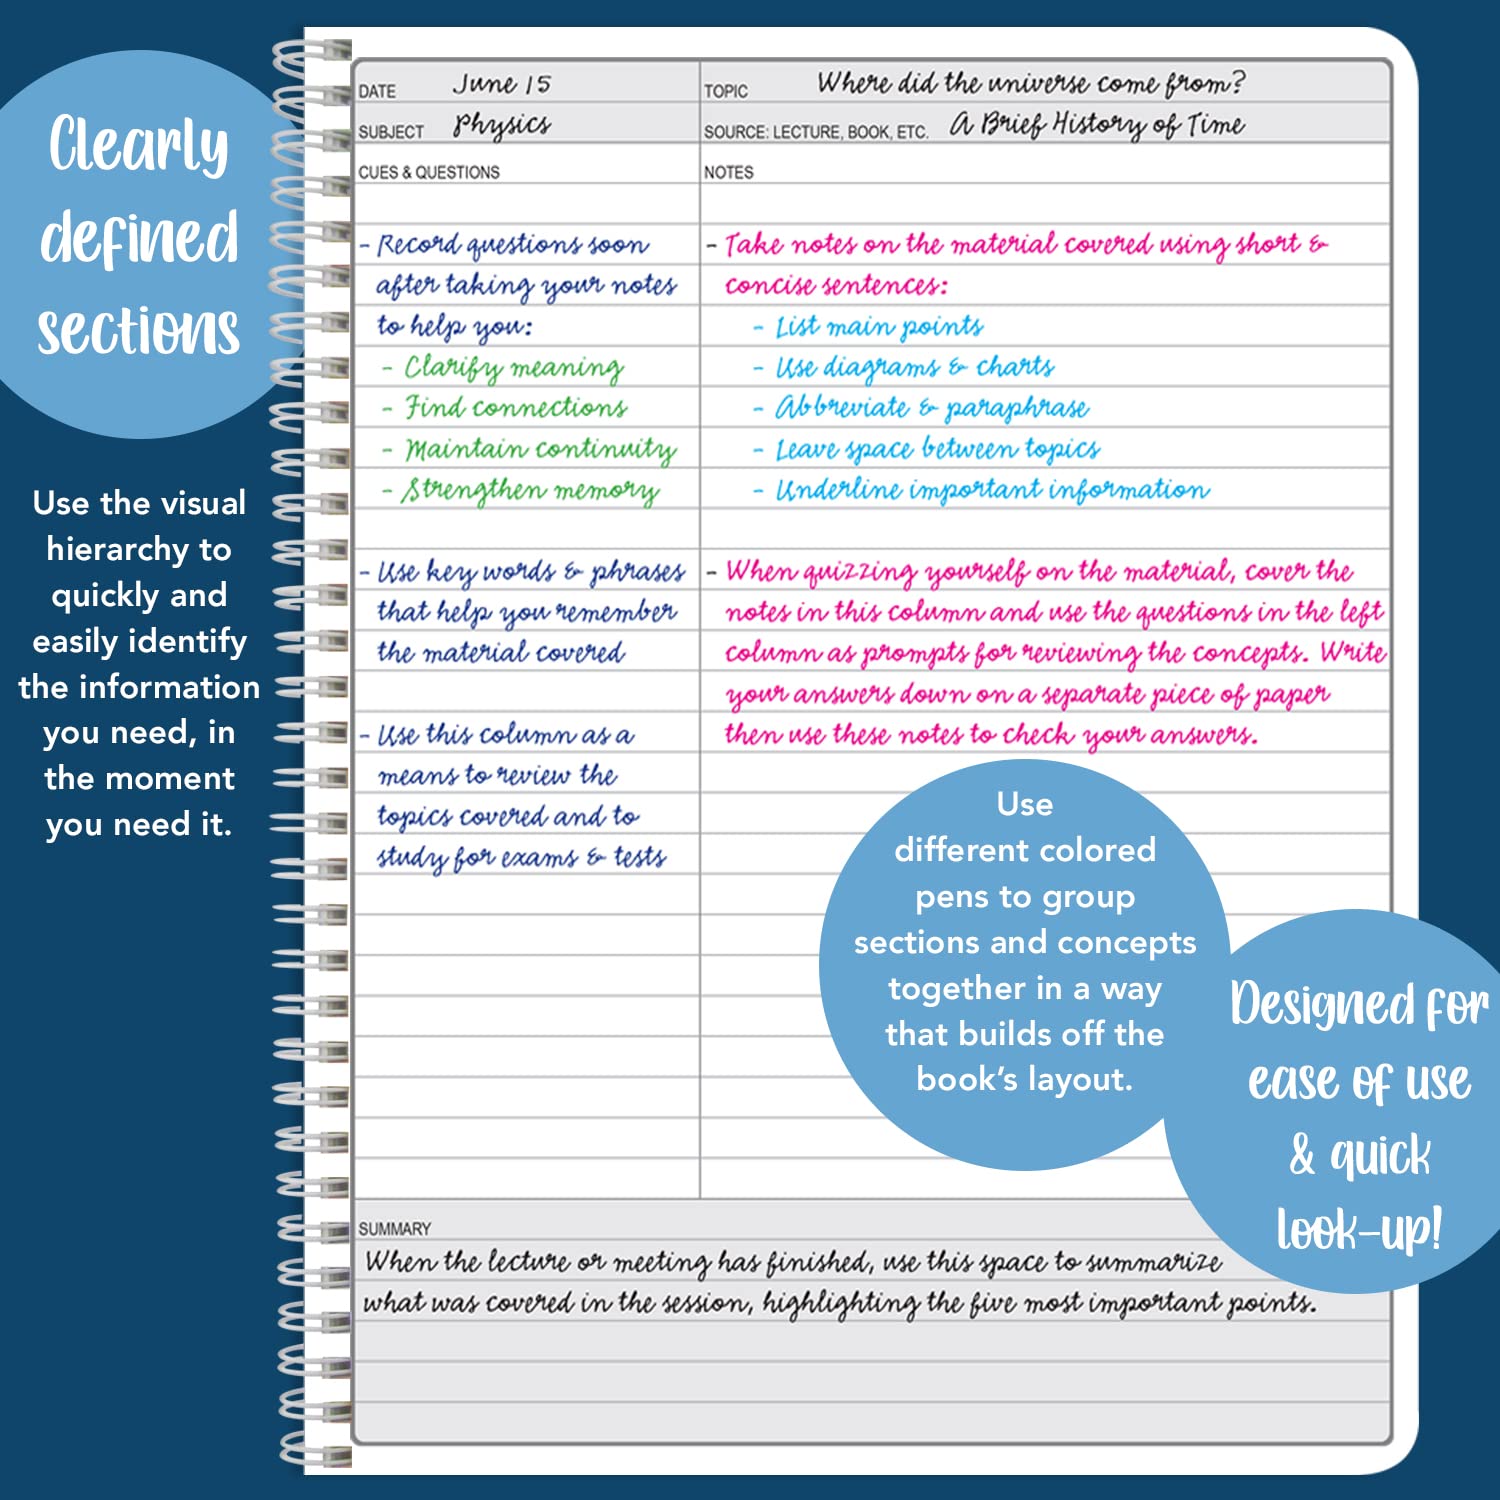 Clearly
defined
sections
Use the visual
hierarchy to
quickly and
easily identify
the information
you need, in
the moment
you need it.
DATE June 15
SUBJECT Physics
TOPIC Where did the universe come from?
SOURCE: LECTURE, BOOK, ETC. A Brief History of Time
CUES & QUESTIONS
- Record questions soon
after taking your notes
to help you:
- Clarify meaning
- Find connections
- Maintain continuity
- Strengthen memory
- Use key words & phrases
that help you remember
the material covered
- Use this column as a
means to review the
topics covered and to
study for exams & tests
NOTES
- Take notes on the material covered using short &
concise sentences:
- List main points
- Use diagrams & charts
- Abbreviate & paraphrase
- Leave space between topics
- Underline important information
- When quizzing yourself on the material, cover the
notes in this column and use the questions in the left
column as prompts for reviewing the concepts. Write
your answers down on a separate piece of paper
then use these notes to check your answers.
Use
different colored
pens to group
sections and concepts
together in a way
that builds off the
book's layout.
Designed for
ease of use
& quick
look-up!
SUMMARY
When the lecture or meeting has finished, use this space to summarize
what was covered in the session, highlighting the five most important points.